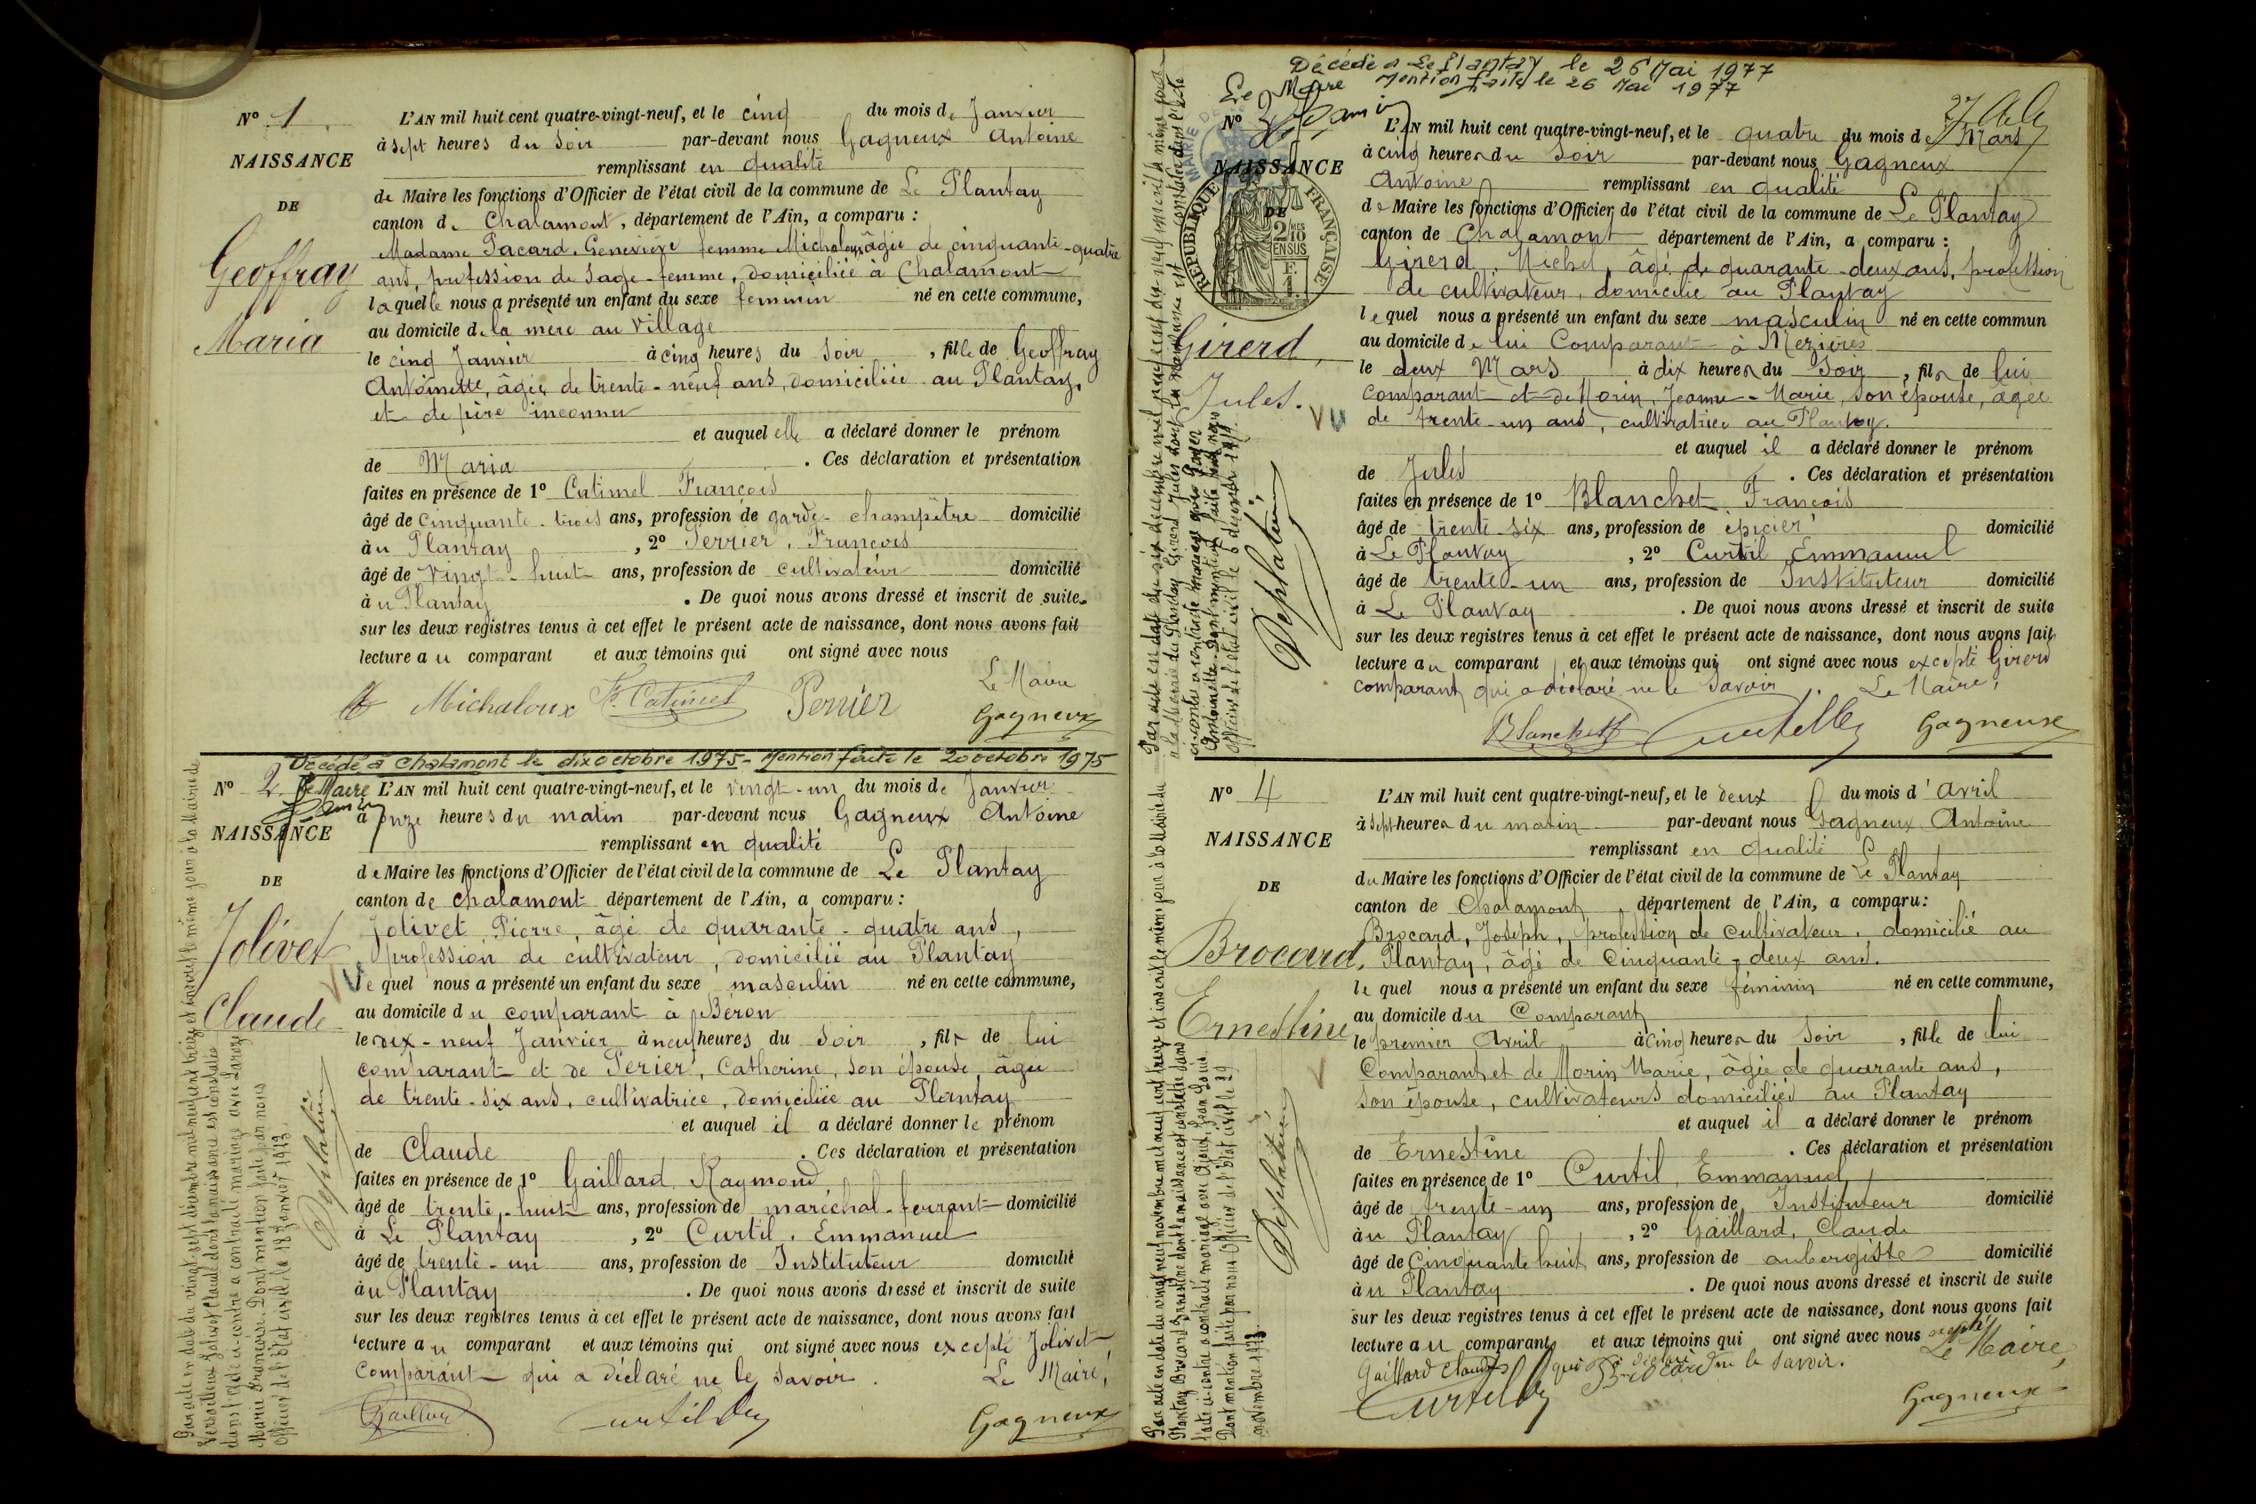 N° 1
NAISSANCE
DE
Geoffray
Maria
L'AN mil huit cent quatre-vingt-neuf, et le cinq du mois de Janvier
à sept heures du soir par-devant nous Gagneux Antoine
remplissant en qualité
de Maire les fonctions d'Officier de l'état civil de la commune de Le Plantay
canton de Chalamont, département de l'Ain, a comparu :
Madame Pacard, Geneviève femme Michaloux, âgée de cinquante-quatre
ans, profession de sage-femme, domiciliée à Chalamont
laquelle nous a présenté un enfant du sexe féminin né en cette commune,
au domicile de la mère au village
le cinq Janvier à cinq heures du soir, fille de Geoffray
Antoinette, âgée de trente-neuf ans, domiciliée au Plantay,
et de père inconnu
et auquel elle a déclaré donner le prénom
de Maria. Ces déclaration et présentation
faites en présence de 1° Catimel François
âgé de cinquante-trois ans, profession de garde-champêtre domicilié
au Plantay, 2° Perrier, François
âgé de vingt-huit ans, profession de cultivateur domicilié
au Plantay. De quoi nous avons dressé et inscrit de suite
sur les deux registres tenus à cet effet le présent acte de naissance, dont nous avons fait
lecture au comparant et aux témoins qui ont signé avec nous
Le Maire
Michaloux F. Catimel Perrier Gagneux
Décédé à Chalamont le dix octobre 1975 - Mention faite le 20 octobre 1975
Le Maire
N° 2
NAISSANCE
DE
Jolivet
Claude
L'AN mil huit cent quatre-vingt-neuf, et le vingt-un du mois de Janvier
à onze heures du matin par-devant nous Gagneux Antoine
remplissant en qualité
de Maire les fonctions d'Officier de l'état civil de la commune de Le Plantay
canton de Chalamont département de l'Ain, a comparu :
Jolivet, Pierre, âgé de quarante-quatre ans,
profession de cultivateur, domicilié au Plantay
VU
le quel nous a présenté un enfant du sexe masculin né en cette commune,
au domicile du comparant à Béron
le dix-neuf Janvier à neuf heures du soir, fils de lui
comparant et de Perier, Catherine, son épouse, âgée
de trente-six ans, cultivatrice, domiciliée au Plantay
et auquel il a déclaré donner le prénom
de Claude. Ces déclaration et présentation
faites en présence de 1° Gaillard, Raymond,
âgé de trente-huit ans, profession de maréchal-ferrant domicilié
à Le Plantay, 2° Curtil, Emmanuel
âgé de trente-un ans, profession de Instituteur domicilié
au Plantay. De quoi nous avons dressé et inscrit de suite
sur les deux registres tenus à cet effet le présent acte de naissance, dont nous avons fait
lecture au comparant et aux témoins qui ont signé avec nous excepté Jolivet,
comparant qui a déclaré ne le savoir. Le Maire,
Gaillard Curtil Gagneux
Par acte en date du vingt-sept décembre mil neuf cent treize et inscrit le même jour à la Mairie de
Versailleux, Jolivet Claude dont la naissance est constatée
dans l'acte ci-contre a contracté mariage avec
Marie Françoise. Dont mention faite par nous
Officier de l'Etat civil le 18 Janvier 1913.
Desplatin
Décédé à Le Plantay le 26 Mai 1977
Mention faite le 26 Mai 1977
Le Maire
MAIRIE DE
N° 3
NAISSANCE
DE
RÉPUBLIQUE FRANÇAISE
2/10 EN SUS
F. 1
Girerd,
Jules.
VU
L'AN mil huit cent quatre-vingt-neuf, et le quatre du mois de Mars
à cinq heures du soir par-devant nous Gagneux
Antoine remplissant en qualité
de Maire les fonctions d'Officier de l'état civil de la commune de Le Plantay
canton de Chalamont département de l'Ain, a comparu :
Girerd, Michel, âgé de quarante-deux ans, profession
de cultivateur, domicilié au Plantay
lequel nous a présenté un enfant du sexe masculin né en cette commun
au domicile de lui Comparant à Mézières
le deux Mars à dix heures du soir, fils de lui
comparant et de Morin, Jeanne-Marie, son épouse, âgée
de trente-un ans, cultivatrice au Plantay.
et auquel il a déclaré donner le prénom
de Jules. Ces déclaration et présentation
faites en présence de 1° Blanchet François
âgé de trente-six ans, profession de épicier domicilié
à Le Plantay, 2° Curtil Emmanuel
âgé de trente-un ans, profession de Instituteur domicilié
à Le Plantay. De quoi nous avons dressé et inscrit de suite
sur les deux registres tenus à cet effet le présent acte de naissance, dont nous avons fait
lecture au comparant et aux témoins qui ont signé avec nous excepté Girerd
comparant qui a déclaré ne le savoir. Le Maire,
Blanchet Curtil Gagneux
Par acte en date du six décembre mil neuf cent dix-neuf inscrit le même jour
à la Mairie du Plantay, Girerd Jules dont la naissance est constatée dans l'acte
ci-contre a contracté mariage avec
Antoinette. Dont mention faite par nous
Officier de l'état civil le 6 décembre 1919.
Desplatin
N° 4
NAISSANCE
DE
Brocard,
Ernestine
V
L'AN mil huit cent quatre-vingt-neuf, et le deux du mois d'avril
à sept heures du matin par-devant nous Gagneux Antoine
remplissant en qualité
du Maire les fonctions d'Officier de l'état civil de la commune de Le Plantay
canton de Chalamont, département de l'Ain, a comparu :
Brocard, Joseph, profession de cultivateur, domicilié au
Plantay, âgé de cinquante-deux ans.
lequel nous a présenté un enfant du sexe féminin né en cette commune,
au domicile du Comparant
le premier Avril à cinq heures du soir, fille de lui
Comparant et de Morin Marie, âgée de quarante ans,
son épouse, cultivateurs domiciliés au Plantay
et auquel il a déclaré donner le prénom
de Ernestine. Ces déclaration et présentation
faites en présence de 1° Curtil, Emmanuel,
âgé de trente-un ans, profession de Instituteur domicilié
au Plantay, 2° Gaillard, Claude
âgé de cinquante huit ans, profession de aubergiste domicilié
au Plantay. De quoi nous avons dressé et inscrit de suite
sur les deux registres tenus à cet effet le présent acte de naissance, dont nous avons fait
lecture au comparant et aux témoins qui ont signé avec nous excepté
Brocard qui a déclaré ne le savoir. Le Maire,
Gaillard Claude
Curtil Gagneux
Par acte en date du vingt neuf novembre mil neuf cent treize et inscrit le même jour à la Mairie du
Plantay, Brocard Ernestine dont la naissance est constatée dans
l'acte ci-contre a contracté mariage avec Jean Louis
Dont mention faite par nous Officier de l'Etat civil le 29
novembre 1913.
Desplatin